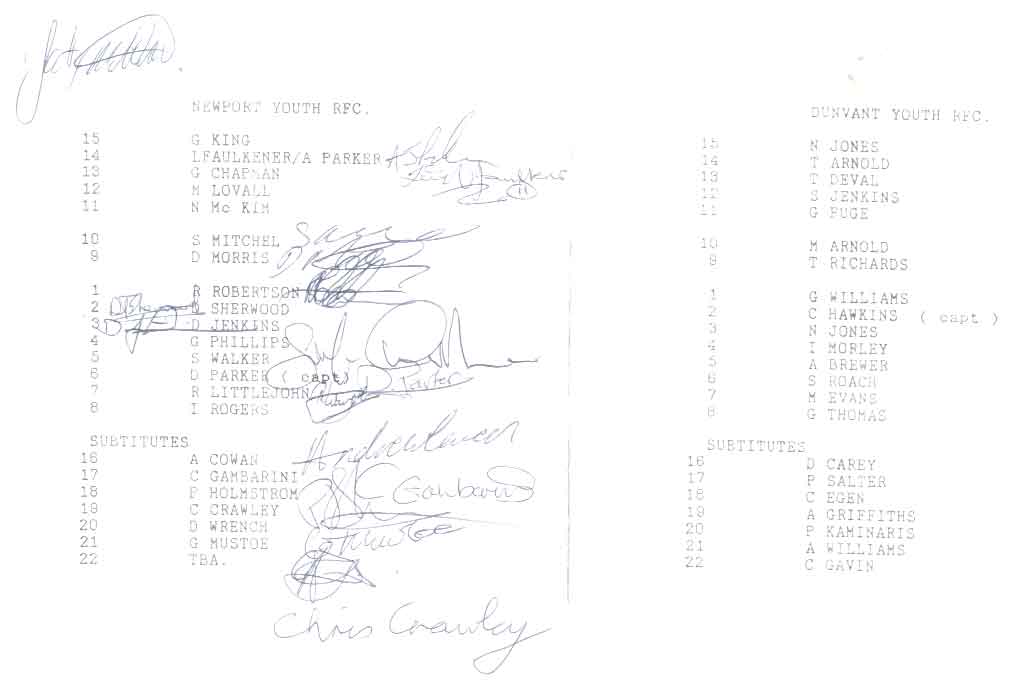 NEWPORT YOUTH RFC.
15 G KING
14 I.FAULKENER/A PARKER
13 G CHAPMAN
12 M LOVALL
11 N Mc KIM
10 S MITCHEL
9 D MORRIS
1 R ROBERTSON
2 D SHERWOOD
3 D JENKINS
4 G PHILLIPS
5 S WALKER
6 D PARKER ( capt)
D. Parker
7 R LITTLEJOHN
8 I ROGERS
SUBTITUTES
16 A COWAN
17 C GAMBARINI
18 P HOLMSTROM
C Gambarini
19 C CRAWLEY
20 D WRENCH
21 G MUSTOE
G Mustoe
22 TBA.
Chris Crawley
DUNVANT YOUTH RFC.
15 N JONES
14 T ARNOLD
13 T DEVAL
12 S JENKINS
11 G FUGE
10 M ARNOLD
9 T RICHARDS
1 G WILLIAMS
2 C HAWKINS ( capt )
3 N JONES
4 I MORLEY
5 A BREWER
6 S ROACH
7 M EVANS
8 G THOMAS
SUBTITUTES
16 D CAREY
17 P SALTER
18 C EGEN
19 A GRIFFITHS
20 P KAMINARIS
21 A WILLIAMS
22 C GAVIN